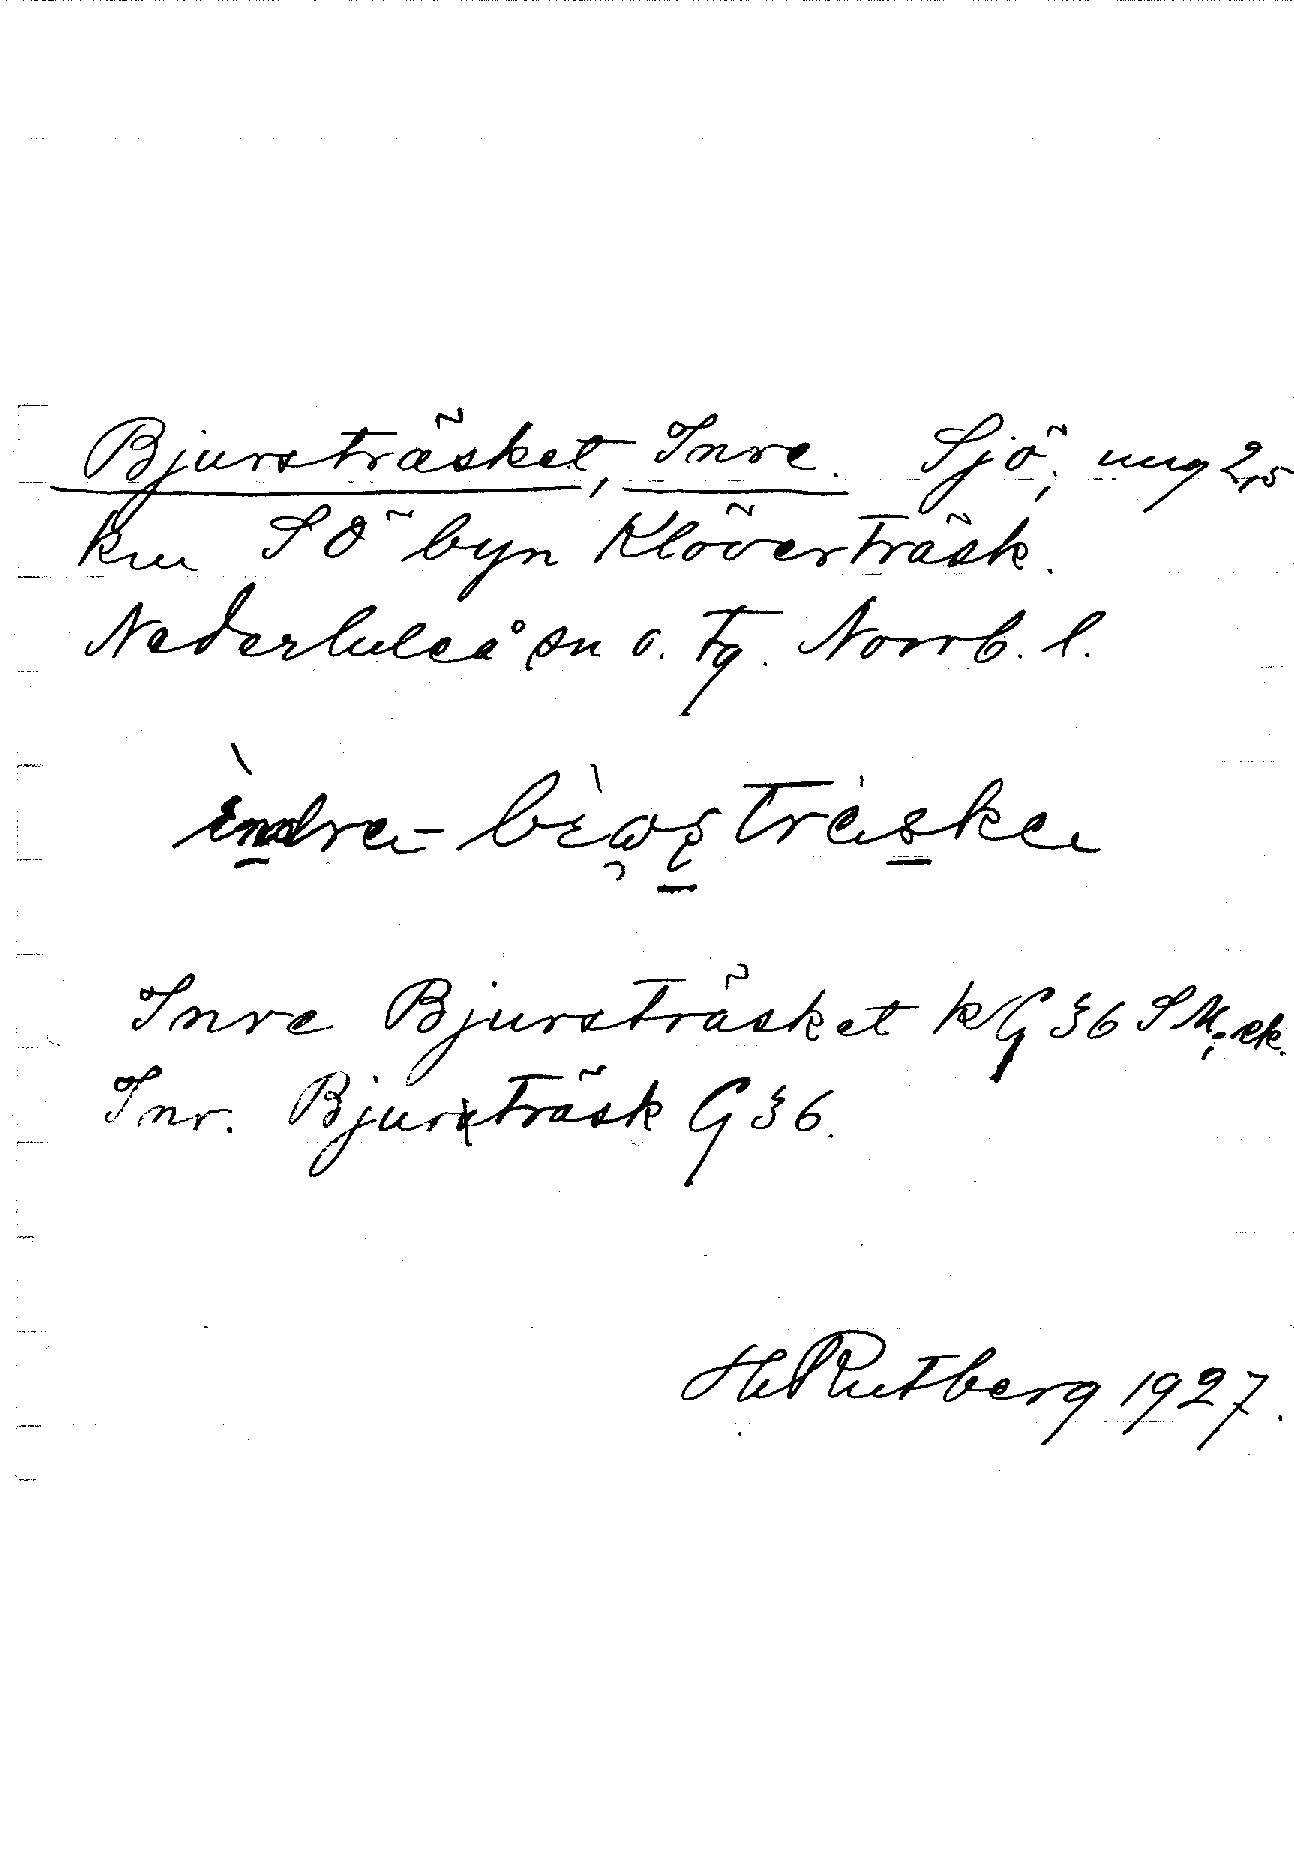 Bjursträsket, Inre. Sjö, ung 2,5
km SÖ byn Klöverträsk.
Nederluleå sn o. tg. Norrb. l.
Inre Bjursträsket k G 36 SM; ek.
Inr. Bjursträsk G 36.
H Rutberg 1927.